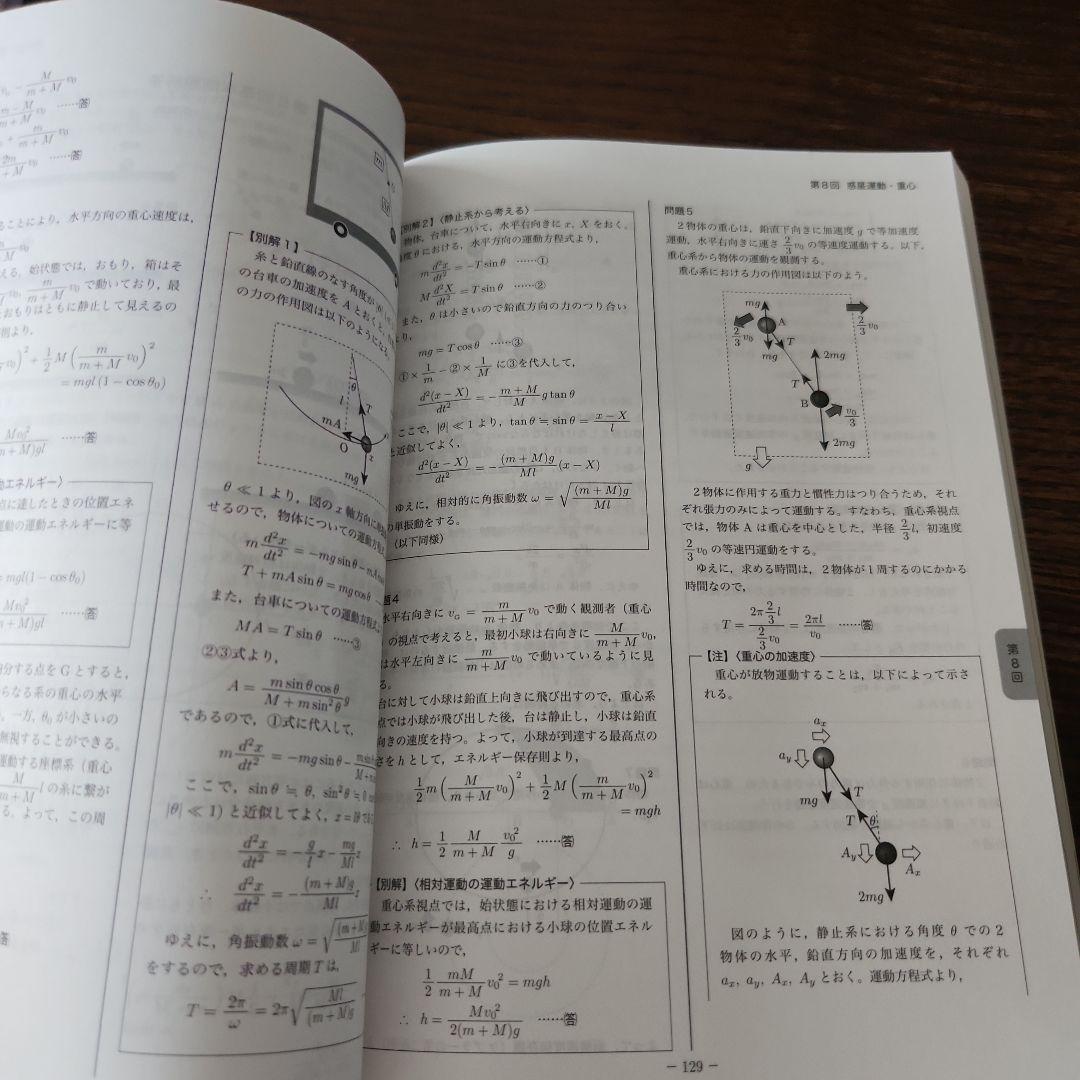 M/(m+M) v₀ ……答
2m/(m+M) v₀ ……答
ることにより，水平方向の重心速度は，
える．始状態では，おもり，箱はそ
m/(m+M) v₀ で動いており，最
おもりはともに静止して見えるの
則より，
v₀)² + 1/2 M (m/(m+M) v₀)²
= mgl(1 − cosθ₀)
Mv₀²/(m+M)gl ……答
動エネルギー〉
点に達したときの位置エネ
の運動エネルギーに等
= mgl(1 − cosθ₀)
Mv₀² ……答
分する点をGとすると，
らなる系の重心の水平
．一方，θ₀が小さいの
無視することができる．
運動する座標系（重心
M/(m+M) l の糸に繋が
る．よって，この周
答
m
【別解1】
糸と鉛直線のなす角度が
の台車の加速度を A とおくと，
の力の作用図は以下のようになる．
θ
l
T
mA
O
x
mg
θ ≪ 1 より，図の x 軸方向に
せるので，物体についての運動方程式
m d²x/dt² = −mg sinθ − mA
T + mA sinθ = mg cosθ
また，台車についての運動方程式
MA = T sinθ ……③
②③式より，
A = m sinθ cosθ/(M + m sin²θ) g
であるので，①式に代入して，
m d²x/dt² = −mg sinθ −
ここで，sinθ ≒ θ, sin²θ ≒ 0
|θ| ≪ 1）と近似してよく，x = lθ
d²x/dt² = −g/l x − mg/Ml x
∴ d²x/dt² = −(m+M)g/Ml x
ゆえに，角振動数 ω = √((m+M)g/Ml)
をするので，求める周期 T は，
T = 2π/ω = 2π√(Ml/(m+M)g)
第8回 惑星運動・重心
別解2】〈静止系から考える〉
物体，台車について，水平右向きに x, X をおく．
度 θ における，水平方向の運動方程式より，
m d²x/dt² = −T sinθ ……①
M d²X/dt² = T sinθ ……②
また，θ は小さいので鉛直方向の力のつり合い
より，
mg = T cosθ ……③
①×1/m − ②×1/M に③を代入して，
d²(x−X)/dt² = −(m+M)/M g tanθ
ここで，|θ| ≪ 1 より，tanθ ≒ sinθ = (x−X)/l
と近似してよく，
d²(x−X)/dt² = −(m+M)g/Ml (x−X)
ゆえに，相対的に角振動数 ω = √((m+M)g/Ml)
の単振動をする．
（以下同様）
題4
水平右向きに v_G = m/(m+M) v₀ で動く観測者（重心
の視点で考えると，最初小球は右向きに M/(m+M) v₀,
は水平左向きに m/(m+M) v₀ で動いているように見
る．
台に対して小球は鉛直上向きに飛び出すので，重心系
点では小球が飛び出した後，台は静止し，小球は鉛直
向きの速度を持つ．よって，小球が到達する最高点の
さを h として，エネルギー保存則より，
1/2 m (M/(m+M) v₀)² + 1/2 M (m/(m+M) v₀)²
= mgh
∴ h = 1/2 M/(m+M) v₀²/g ……答
【別解】〈相対運動の運動エネルギー〉
重心系視点では，始状態における相対運動の運
動エネルギーが最高点における小球の位置エネル
ギーに等しいので，
1/2 mM/(m+M) v₀² = mgh
∴ h = Mv₀²/2(m+M)g ……答
問題5
2物体の重心は，鉛直下向きに加速度 g で等加速度
運動，水平右向きに速さ 2/3 v₀ の等速度運動する．以下，
重心系から物体の運動を観測する．
重心系における力の作用図は以下のよう．
mg
A
2/3 v₀
2/3 v₀
T
mg
2mg
T
B
v₀/3
2mg
g
2物体に作用する重力と慣性力はつり合うため，それ
ぞれ張力のみによって運動する．すなわち，重心系視点
では，物体 A は重心を中心とした，半径 2/3 l，初速度
2/3 v₀ の等速円運動をする．
ゆえに，求める時間は，2物体が1周するのにかかる
時間なので，
T = 2π 2/3 l / 2/3 v₀ = 2πl/v₀ ……答
【注】〈重心の加速度〉
重心が放物運動することは，以下によって示さ
れる．
aₓ
a_y
T
mg
T
θ
A_y
Aₓ
2mg
図のように，静止系における角度 θ での2
物体の水平，鉛直方向の加速度を，それぞれ
aₓ, a_y, Aₓ, A_y とおく．運動方程式より，
第8回
− 129 −